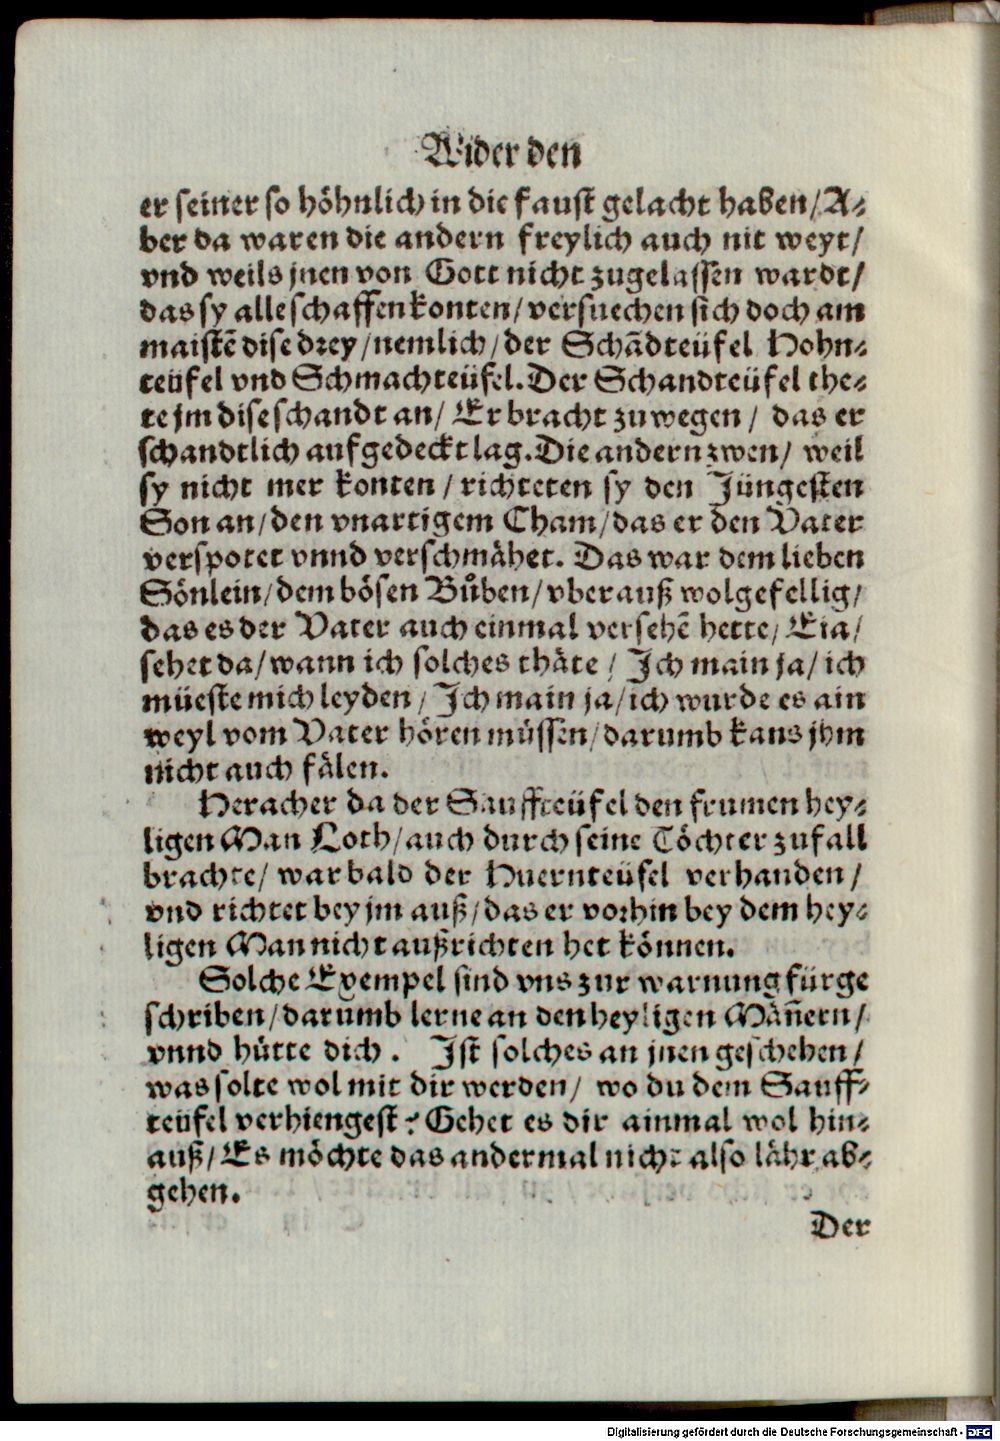 Wider den
er seiner so höhnlich in die faust gelacht haben/ A⸗
ber da waren die andern freylich auch nit weyt/
vnd weils jnen von Gott nicht zugelassen wardt/
das sy alle schaffen konten/ versuechen sich doch am
maistē dise drey/ nemlich/ der Schādteüfel Hohn⸗
teüfel vnd Schmachteüfel. Der Schandteüfel the⸗
te jm dise schandt an/ Er bracht zuwegen/ das er
schandtlich aufgedeckt lag. Die andern zwen/ weil
sy nicht mer konten/ richteten sy den Jüngesten
Son an/ den vnartigem Cham/ das er den Vater
verspotet vnnd verschmähet. Das war dem lieben
Sönlein/ dem bösen Bůben/ vberauß wolgefellig/
das es der Vater auch einmal versehē hette/ Eia/
sehet da/ wann ich solches thäte/ Ich main ja/ ich
müeste mich leyden/ Ich main ja/ ich wurde es ain
weyl vom Vater hören müssen/ darumb kans jhm
nicht auch fälen.
Heracher da der Sauffteüfel den frumen hey⸗
ligen Man Loth/ auch durch seine Töchter zufall
brachte/ war bald der Huernteüfel verhanden/
vnd richtet bey jm auß/ das er vorhin bey dem hey⸗
ligen Man nicht außrichten het können.
Solche Exempel sind vns zur warnung fürge
schriben/ darumb lerne an den heyligen Mäñern/
vnnd hütte dich. Ist solches an jnen geschehen/
was solte wol mit dir werden/ wo du dem Sauff⸗
teüfel verhiengest? Gehet es dir ainmal wol hin⸗
auß/ Es möchte das andermal nicht also lähr ab⸗
gehen.
Der
Digitalisierung gefördert durch die Deutsche Forschungsgemeinschaft - DFG